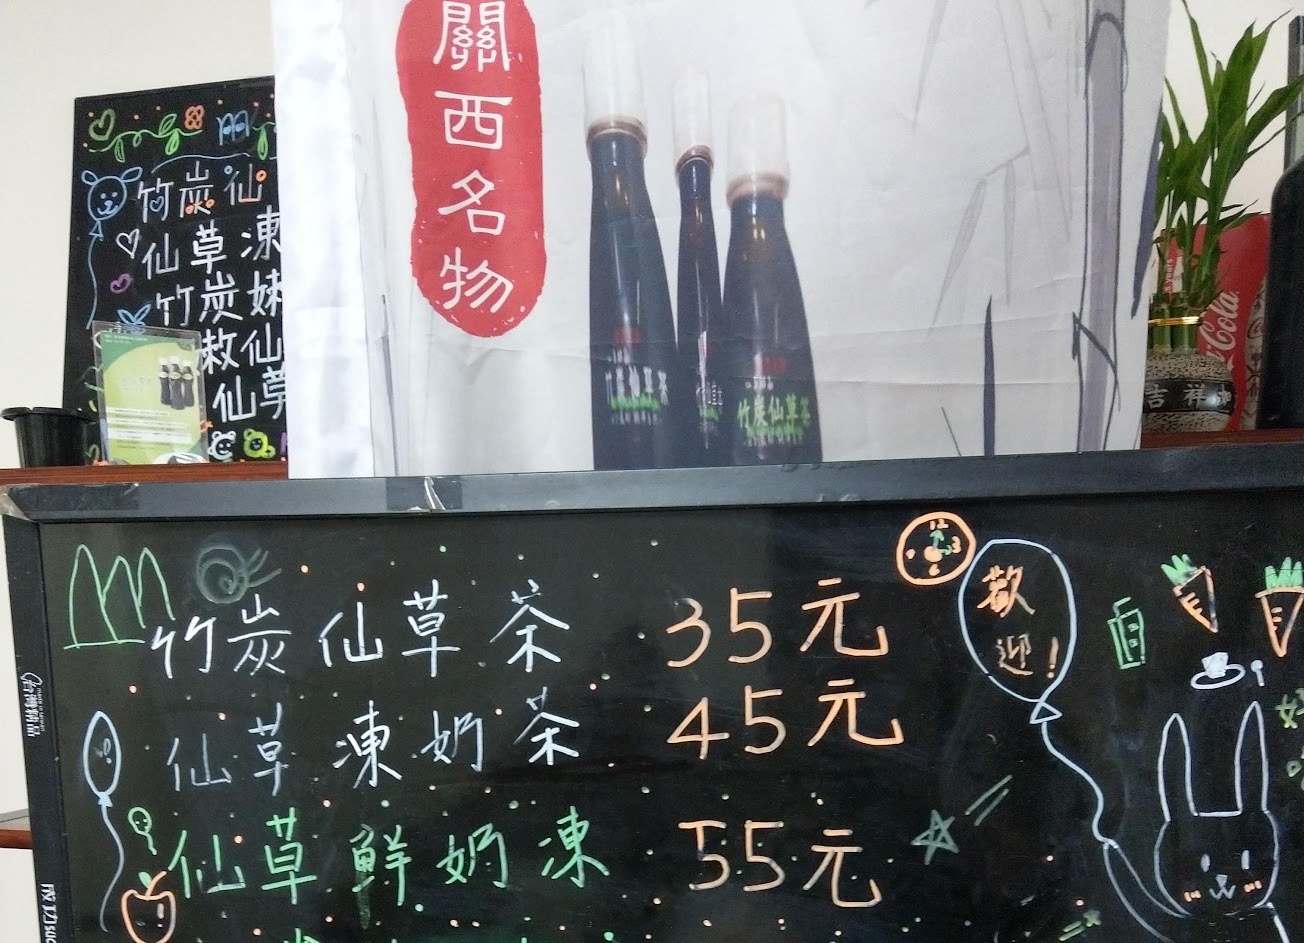 關西名物
竹炭仙
仙草凍
竹炭嫩
仙
仙草
竹炭仙草茶
吉祥
Cola
歡迎!
竹炭仙草茶 35元
仙草凍奶茶 45元
仙草鮮奶凍 55元
好